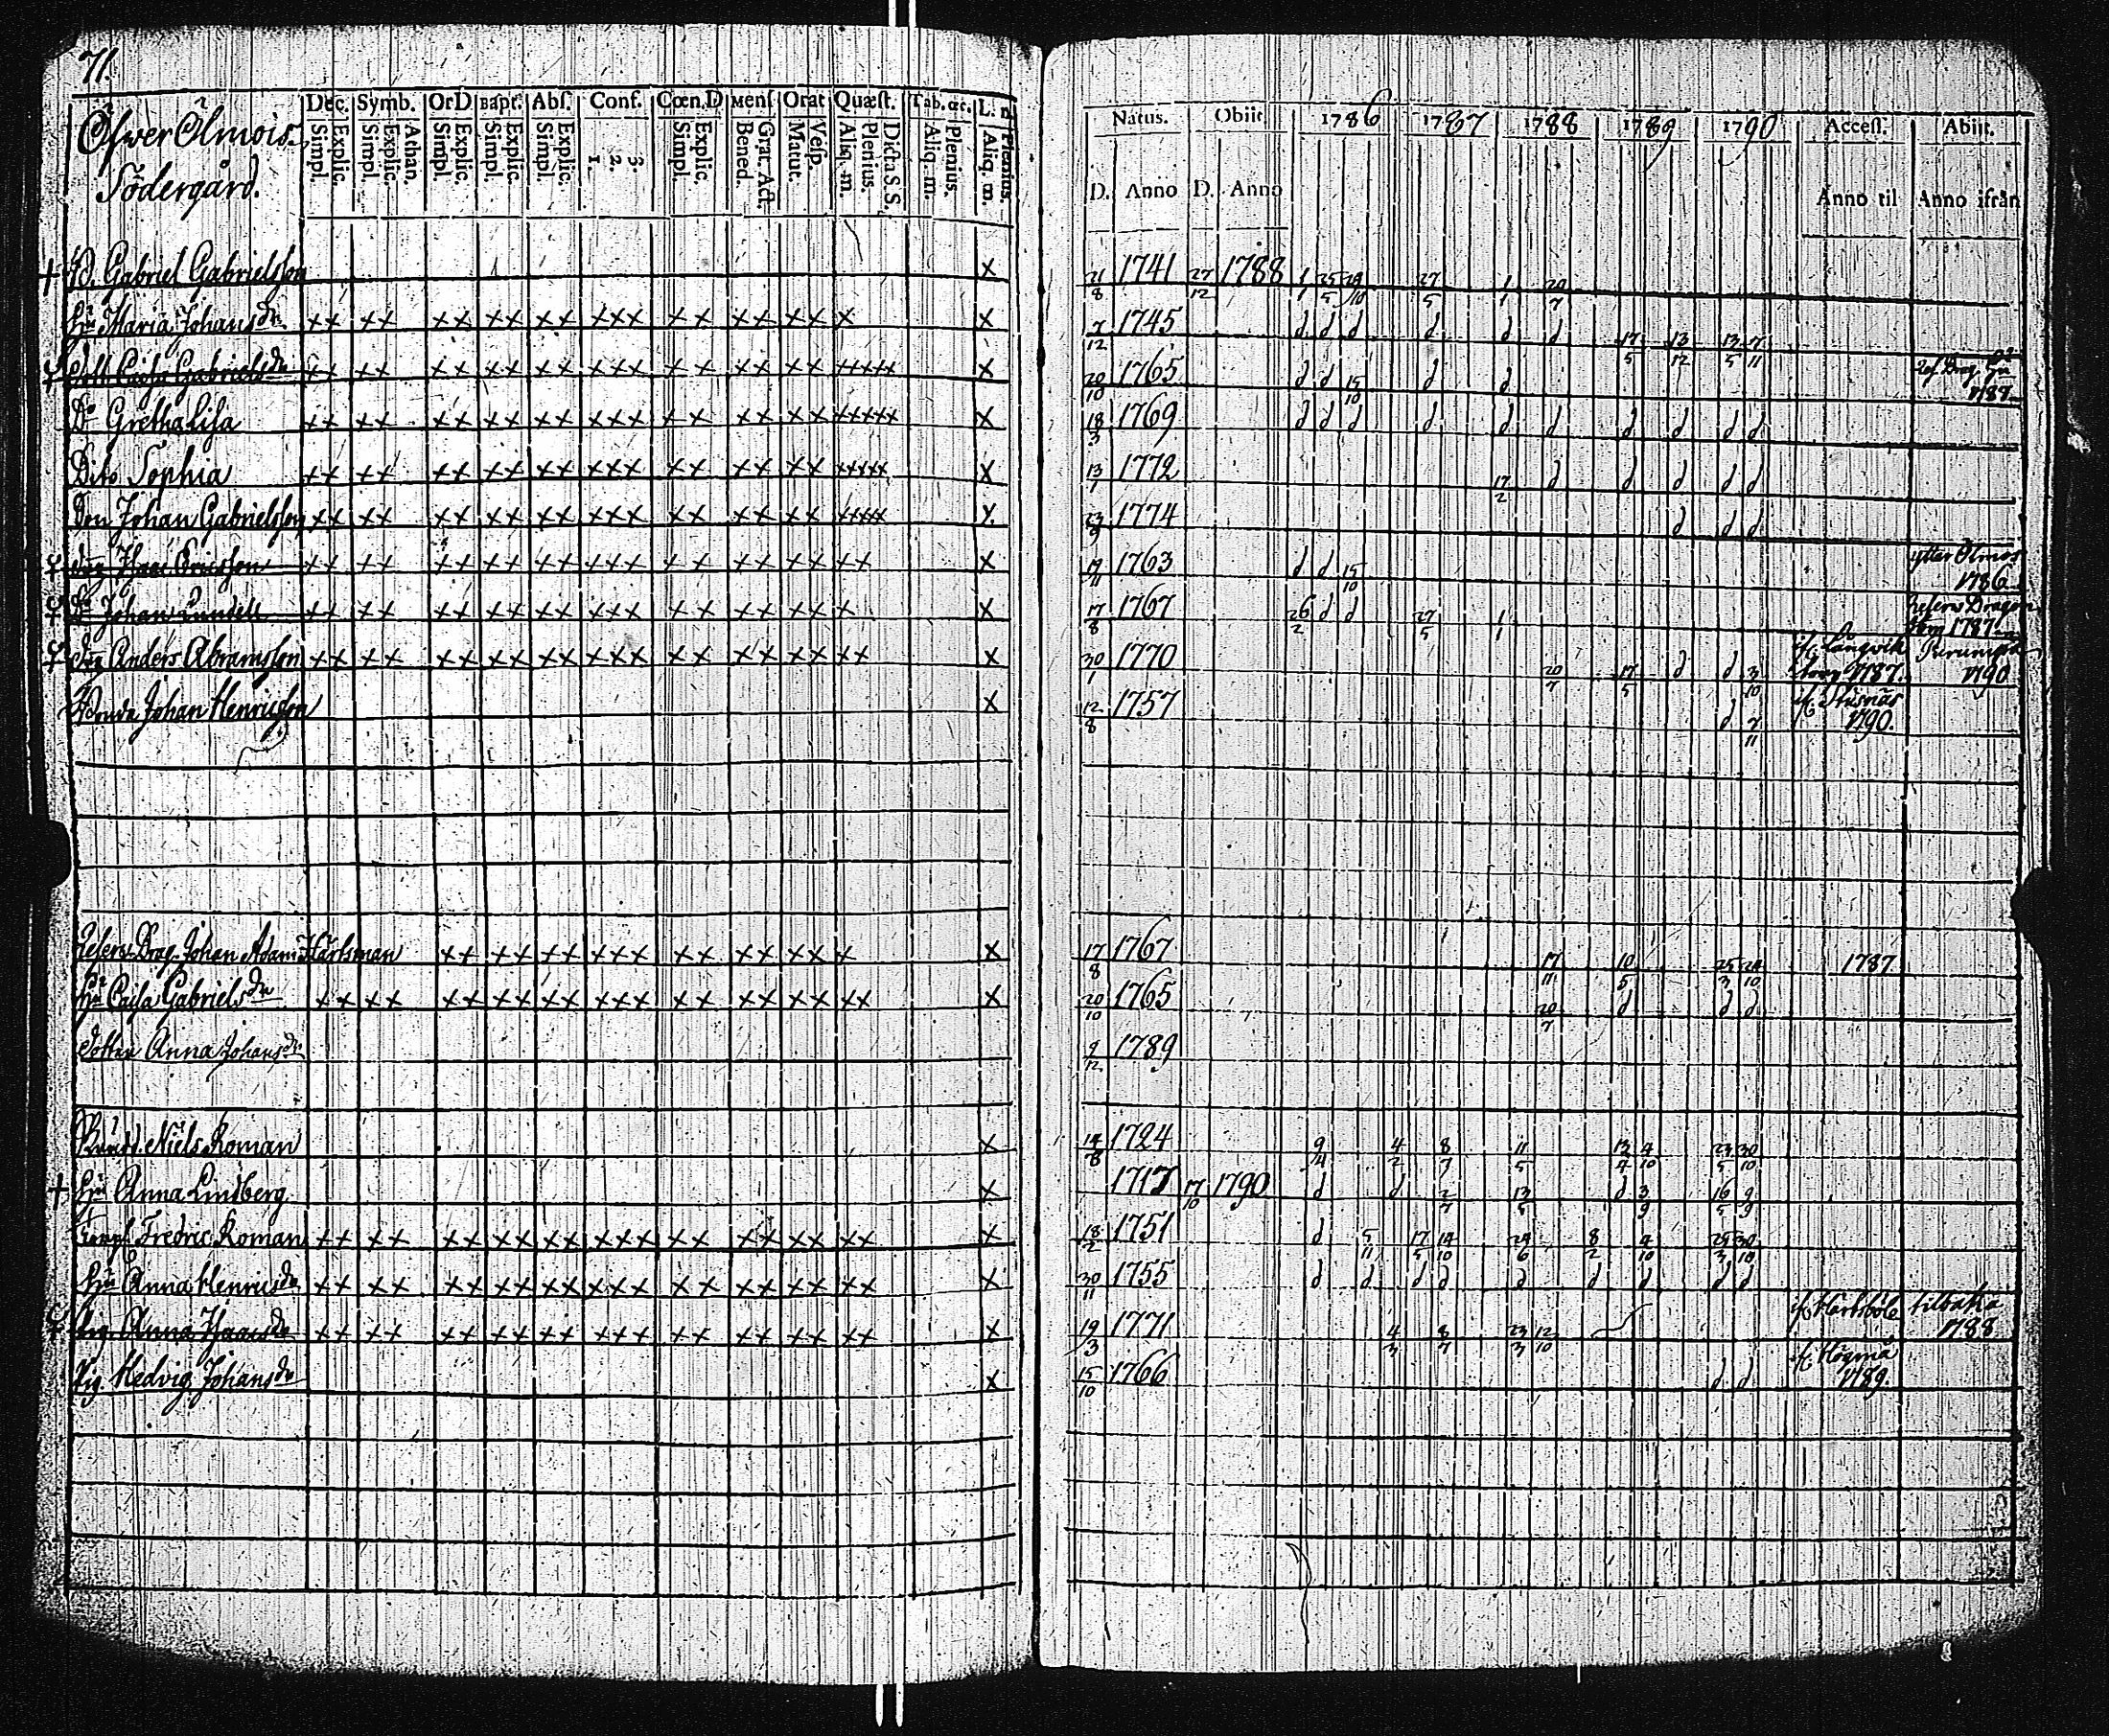 71.
Öfwer Ölmois
Södergård.
Dec. Symb. OrD Bapt. Abs. Conf. Cœn.D Mens Orat Quæst. Tab.œc. L. n.
Simpl. Explic. Simpl. Explic. Athan. Simpl. Explic. Simpl. Explic. Simpl. Explic. 1. 2. 3. Simpl. Explic. Bened. Grat. Act. Matut. Vesp. Aliq. m. Plenius. Dicta S. S. Aliq. m. Plenius. Aliq. m. Plenius.
Natus. Obiit 1786 1787 1788 1789 1790 Access. Abiit.
D. Anno D. Anno Anno til Anno ifrån
Gabriel Gabrielsson x 21/8 1741 27/12 1788 1/1 25/5 19/10 27/5 1/1 20/7
Hu Maria Johansdr xx xx xx xx xx xxx xx xx xx x x 7/12 1745 d d d d d d 17/5 13/12 13/5 7/11
Dott Cajsa Gabrielsdr xx xx xx xx xx xxx xx xx xx xxxxx x 20/10 1765 d d 15/10 d d Ref. Drag. Hu 1787
Do Gretha Lisa xx xx xx xx xx xxx xx xx xx xxxxx x 18/3 1769 d d d d d d d d d d
Dito Sophia xx xx xx xx xx xxx xx xx xx xxxxx x 13/1 1772 17/2 d d d d d
Son Johan Gabrielsson xx xx xx xx xx xxx xx xx xx xxxxx x 23/9 1774 d d d
Drg Isaac Ericsson xx xx xx xx xx xxx xx xx xx xx x 19/11 1763 d d 15/10 ytter Ölmos 1786
Do Johan Lundell xx xx xx xx xx xxx xx xx xx x x 17/8 1767 26/2 d d 27/5 1/1 Reserv Dragon 1787
Drg Anders Abramsson xx xx xx xx xx xxx xx xx xx xx x 30/1 1770 20/7 17/5 d d 3/10 if. Långvik 1787. 1790
Johan Henricsson x 12/8 1757 d 7/11 if. 1790.
Reserv Drag. Johan Adams Karlsman xx xx xx xxx xx xx xx x x 17/8 1767 17/11 10/5 25/3 24/10 1787
Hu Cajsa Gabrielsdr xx xx xx xx xx xxx xx xx xx xx x 20/10 1765 20/7 d d d
Dotter Anna Johansdr 9/12 1789
Niels Roman x 14/8 1724 9/4 4/2 8/7 11/5 13/4 4/10 23/5 30/10
Hu Anna Lindberg x 1717 17/10 1790 d d 2/7 13/5 d 3/9 16/5 9/9
Fredric Roman xx xx xx xx xx xxx xx xx xx xx x 18/2 1751 d 5/11 17/5 14/10 29/6 8/2 4/10 25/3 30/10
Hu Anna Henricsdr xx xx xx xx xx xxx xx xx xx xx x 30/11 1755 d d d d d d d d d
Pig. Anna Isaacsdr xx xx xx xx xx xxx xx xx xx xx x 19/3 1771 4/3 8/7 23/3 12/10 if. Karsböle tilbaka 1788
Pig. Hedvig Johansdr x 15/10 1766 d d if. Högmå 1789